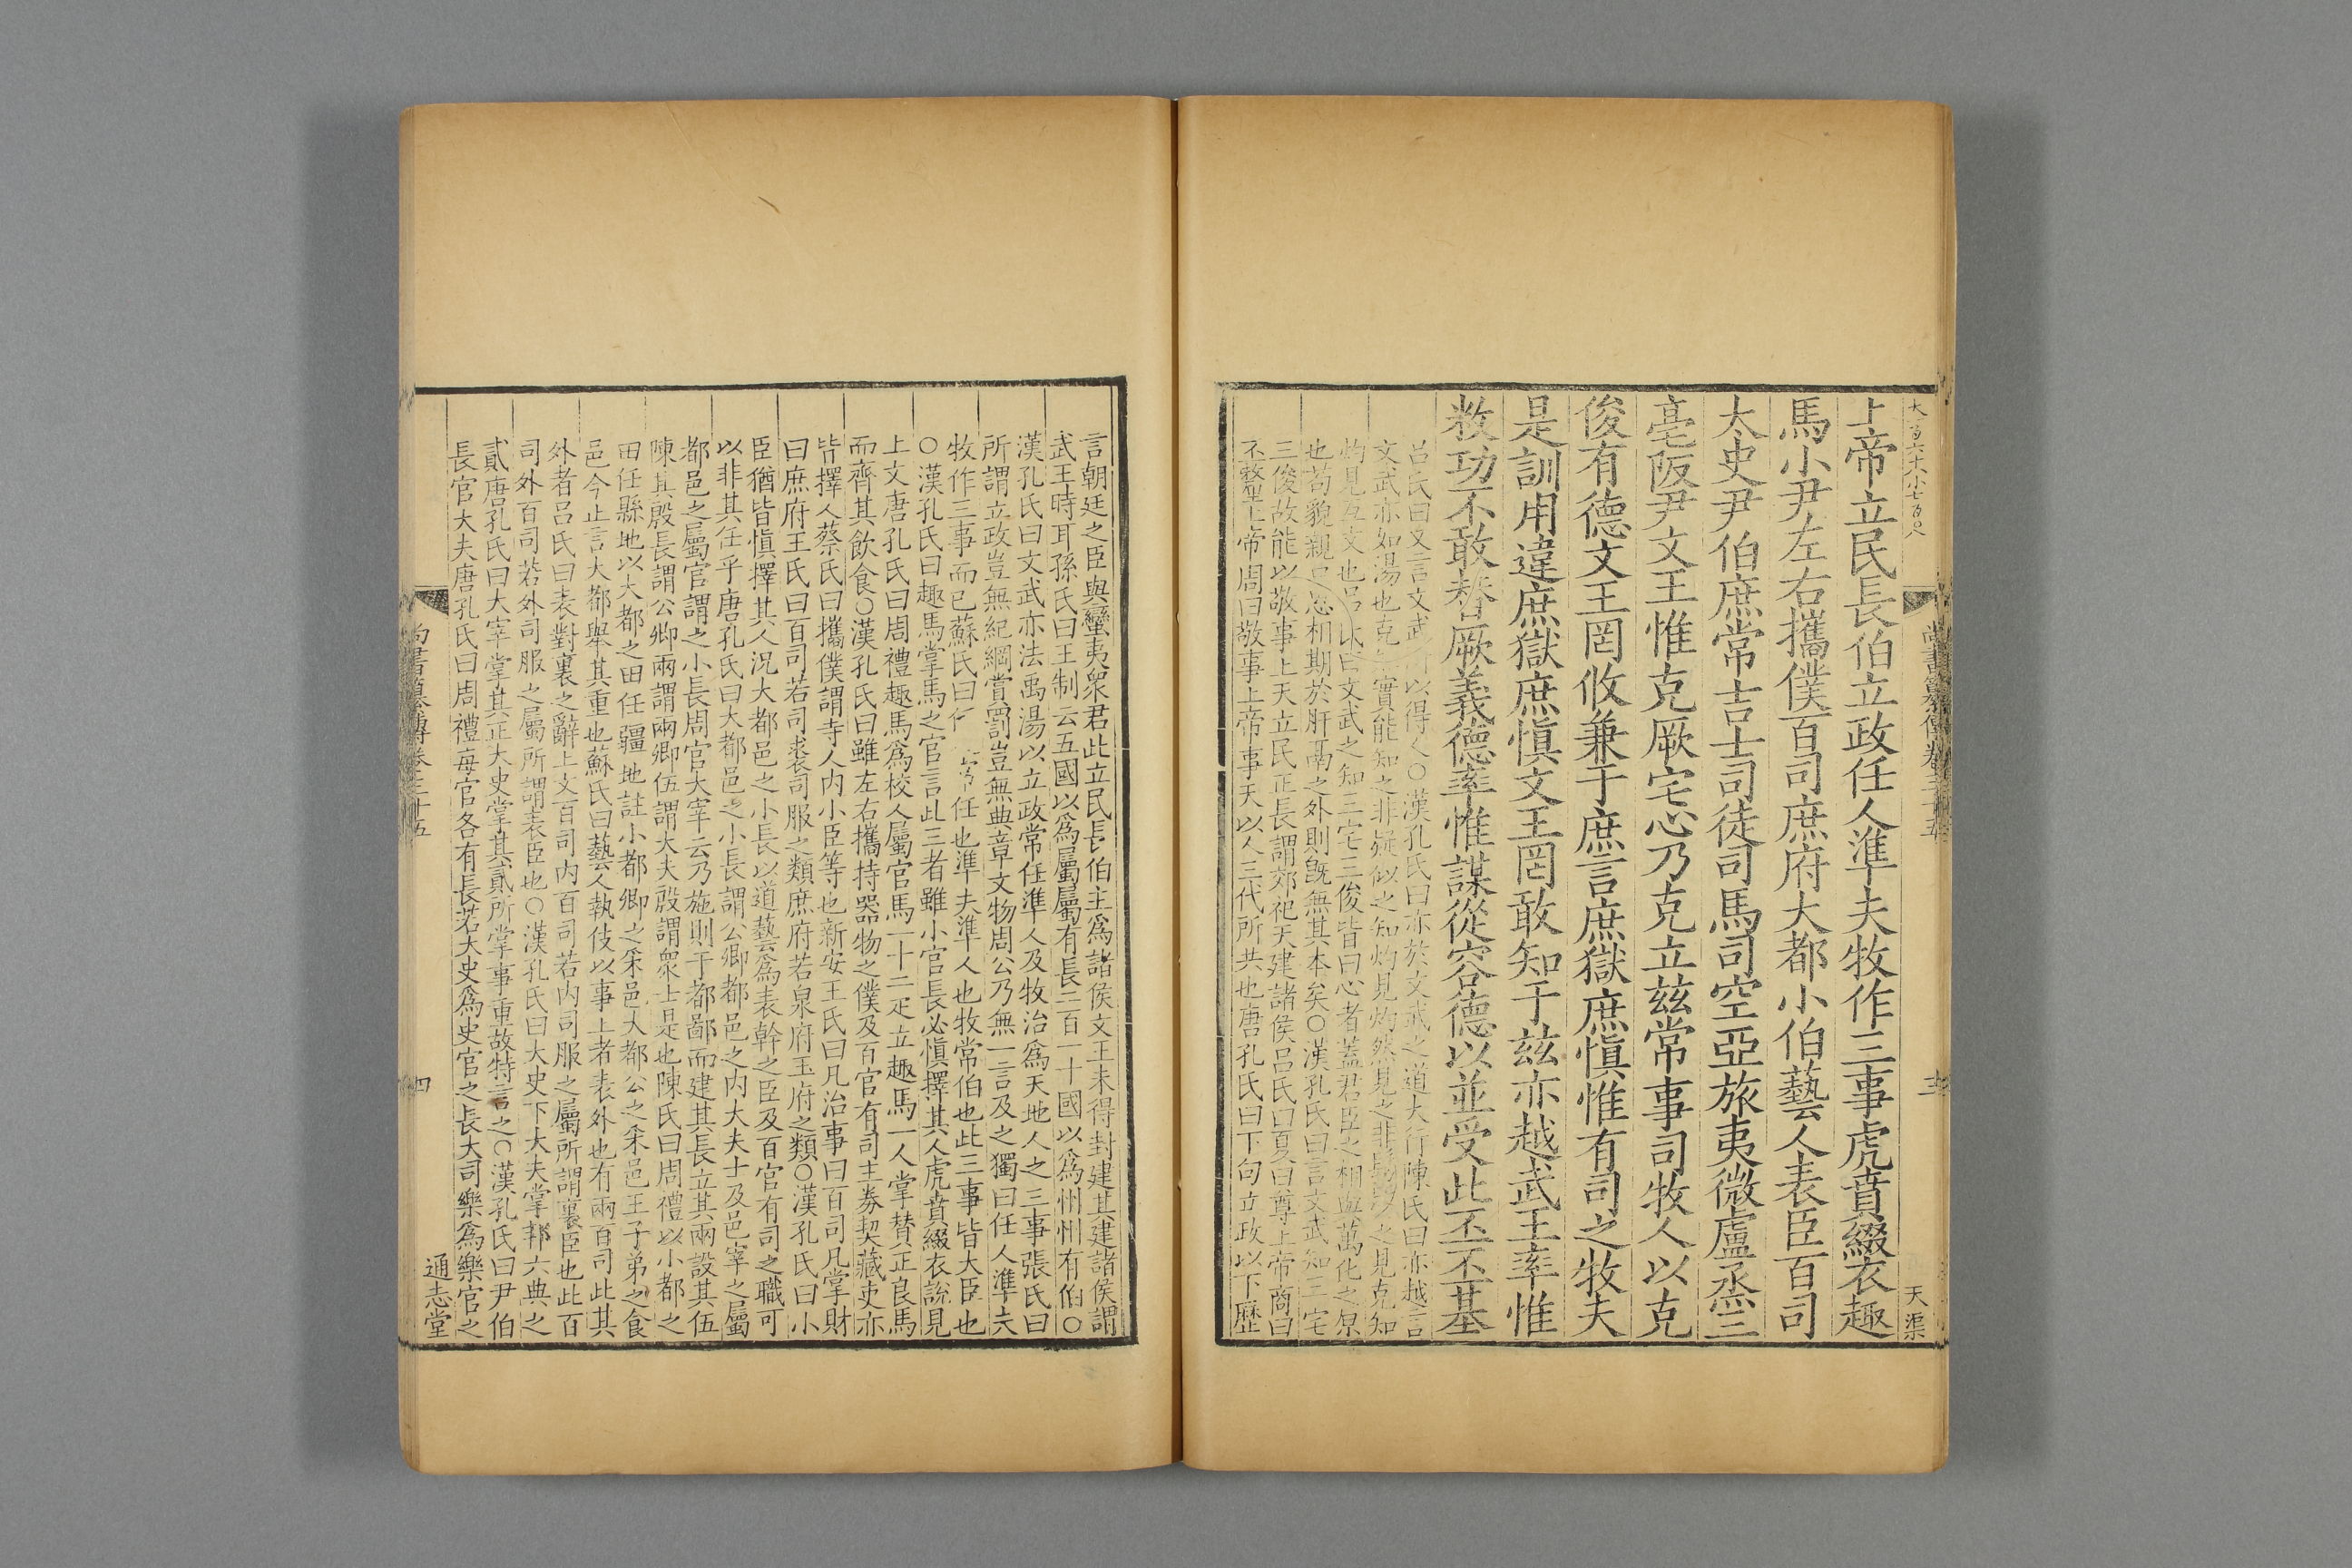 上帝立民長伯立政任人準夫牧作三事虎賁綴衣趣
馬小尹左右攜僕百司庶府大都小伯藝人表臣百司
太史尹伯庶常吉士司徒司馬司空亞旅夷微盧烝三
亳阪尹文王惟克厥宅心乃克立茲常事司牧人以克
俊有德文王罔攸兼于庶言庶獄庶慎惟有司之牧夫
是訓用違庶獄庶慎文王罔敢知于茲亦越武王率惟
敉功不敢替厥義德率惟謀從容德以並受此丕丕基
呂氏曰又言文武以得人○漢孔氏曰亦於文武之道大行陳氏曰亦越言
文武亦如湯也克實能知之非疑似之知灼見灼然見之非影響之見克知
灼見互文也呂氏曰文武之知三宅三俊皆曰心者蓋君臣之相與萬化之原
也苟貌親忽相期於肝鬲之外則旣無其本矣○漢孔氏曰言文武知三宅
三俊故能以敬事上天立民正長謂郊祀天建諸侯呂氏曰夏曰尊上帝商曰
丕釐上帝周曰敬事上帝事天以人三代所共也唐孔氏曰下句立政以下歷
言朝廷之臣與蠻夷衆君此立民長伯主爲諸侯文王未得封建其建諸侯謂
武王時耳孫氏曰王制云五國以爲屬屬有長二百一十國以爲州州有伯○
漢孔氏曰文武亦法禹湯以立政常任準人及牧治爲天地人之三事張氏曰
所謂立政豈無紀綱賞罰豈無典章文物周公乃無一言及之獨曰任人準夫
牧作三事而已蘇氏曰任常任也準夫準人也牧常伯也此三事皆大臣也
○漢孔氏曰趣馬掌馬之官言此三者雖小官長必慎擇其人虎賁綴衣說見
上文唐孔氏曰周禮趣馬爲校人屬官馬一十二疋立趣馬一人掌贊正良馬
而齊其飲食○漢孔氏曰雖左右攜持器物之僕及百官有司主券契藏吏亦
皆擇人蔡氏曰攜僕謂寺人內小臣等也新安王氏曰凡治事曰百司凡掌財
曰庶府王氏曰百司若司裘司服之類庶府若泉府玉府之類○漢孔氏曰小
臣猶皆慎擇其人況大都邑之小長以道藝爲表幹之臣及百官有司之職可
以非其任乎唐孔氏曰大都邑之小長謂公卿都邑之內大夫士及邑宰之屬
都邑之屬官謂之小長周官大宰云乃施則于都鄙而建其長立其兩設其伍
陳其殷長謂公卿兩謂兩卿伍謂大夫殷謂衆士是也陳氏曰周禮以小都之
田任縣地以大都之田任疆地註小都卿之采邑大都公之采邑王子弟之食
邑今止言大都舉其重也蘇氏曰藝人執伎以事上者表外也有兩百司此其
外者呂氏曰表對裏之辭上文百司內百司若內司服之屬所謂裏臣也此百
司外百司若外司服之屬所謂表臣也○漢孔氏曰大史下大夫掌邦六典之
貳唐孔氏曰大宰掌其正大史掌其貳所掌事重故特言之○漢孔氏曰尹伯
長官大夫唐孔氏曰周禮每官各有長若大史爲史官之長大司樂爲樂官之
通志堂